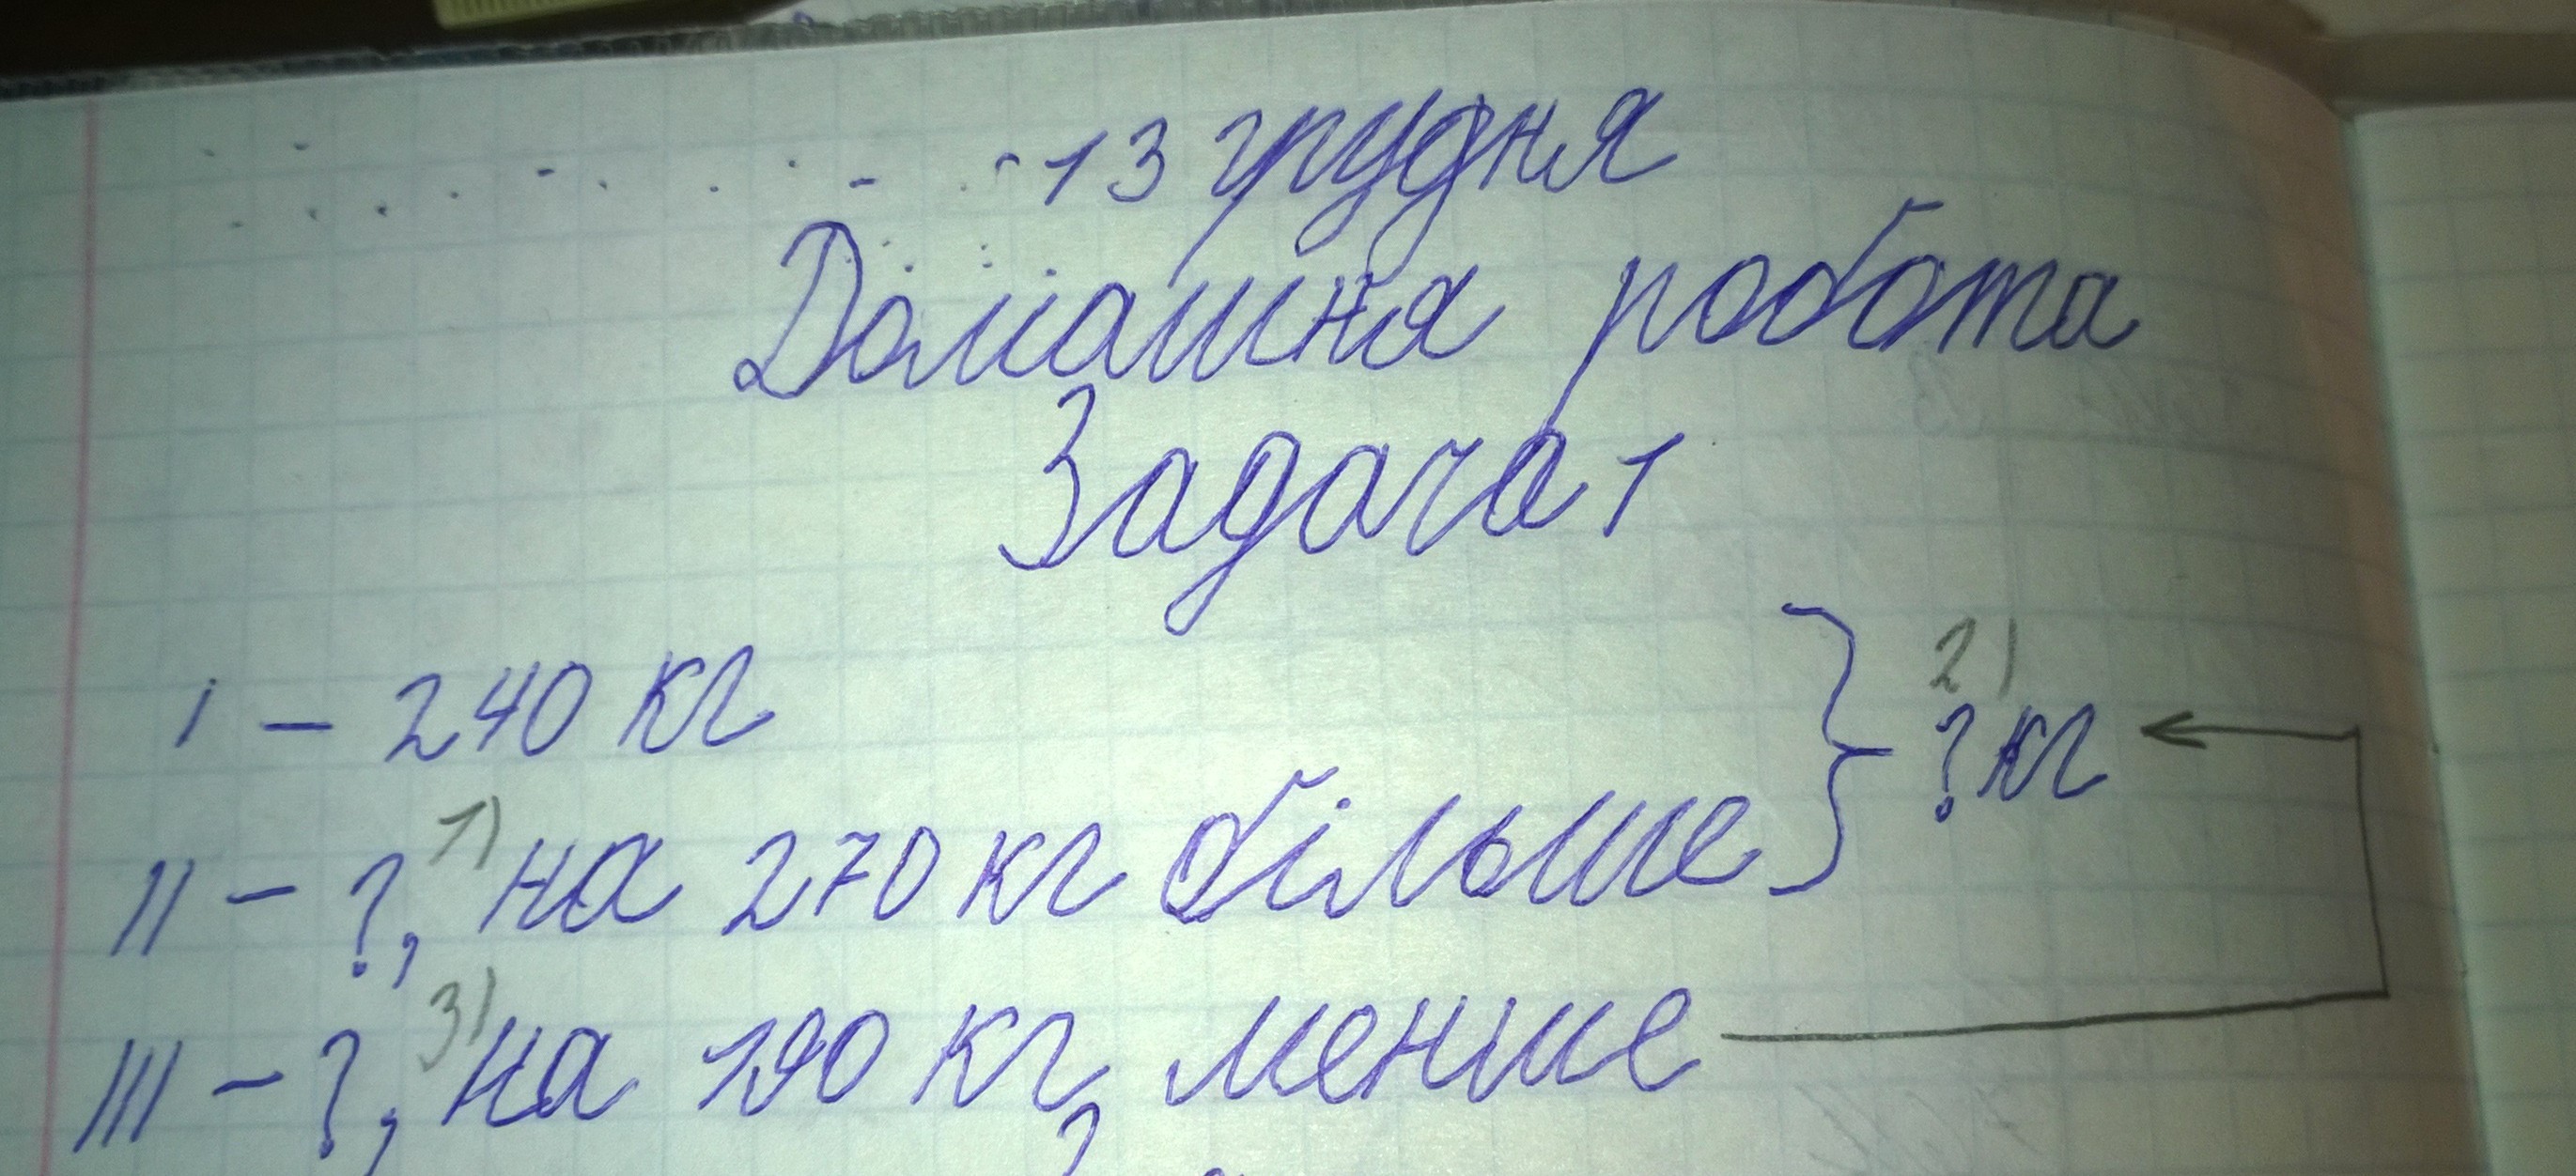 13 грудня
Домашня робота
Задача 1
I - 240 кг
2)
? кг
1)
II - ?, на 270 кг більше
3)
III - ?, на 190 кг менше